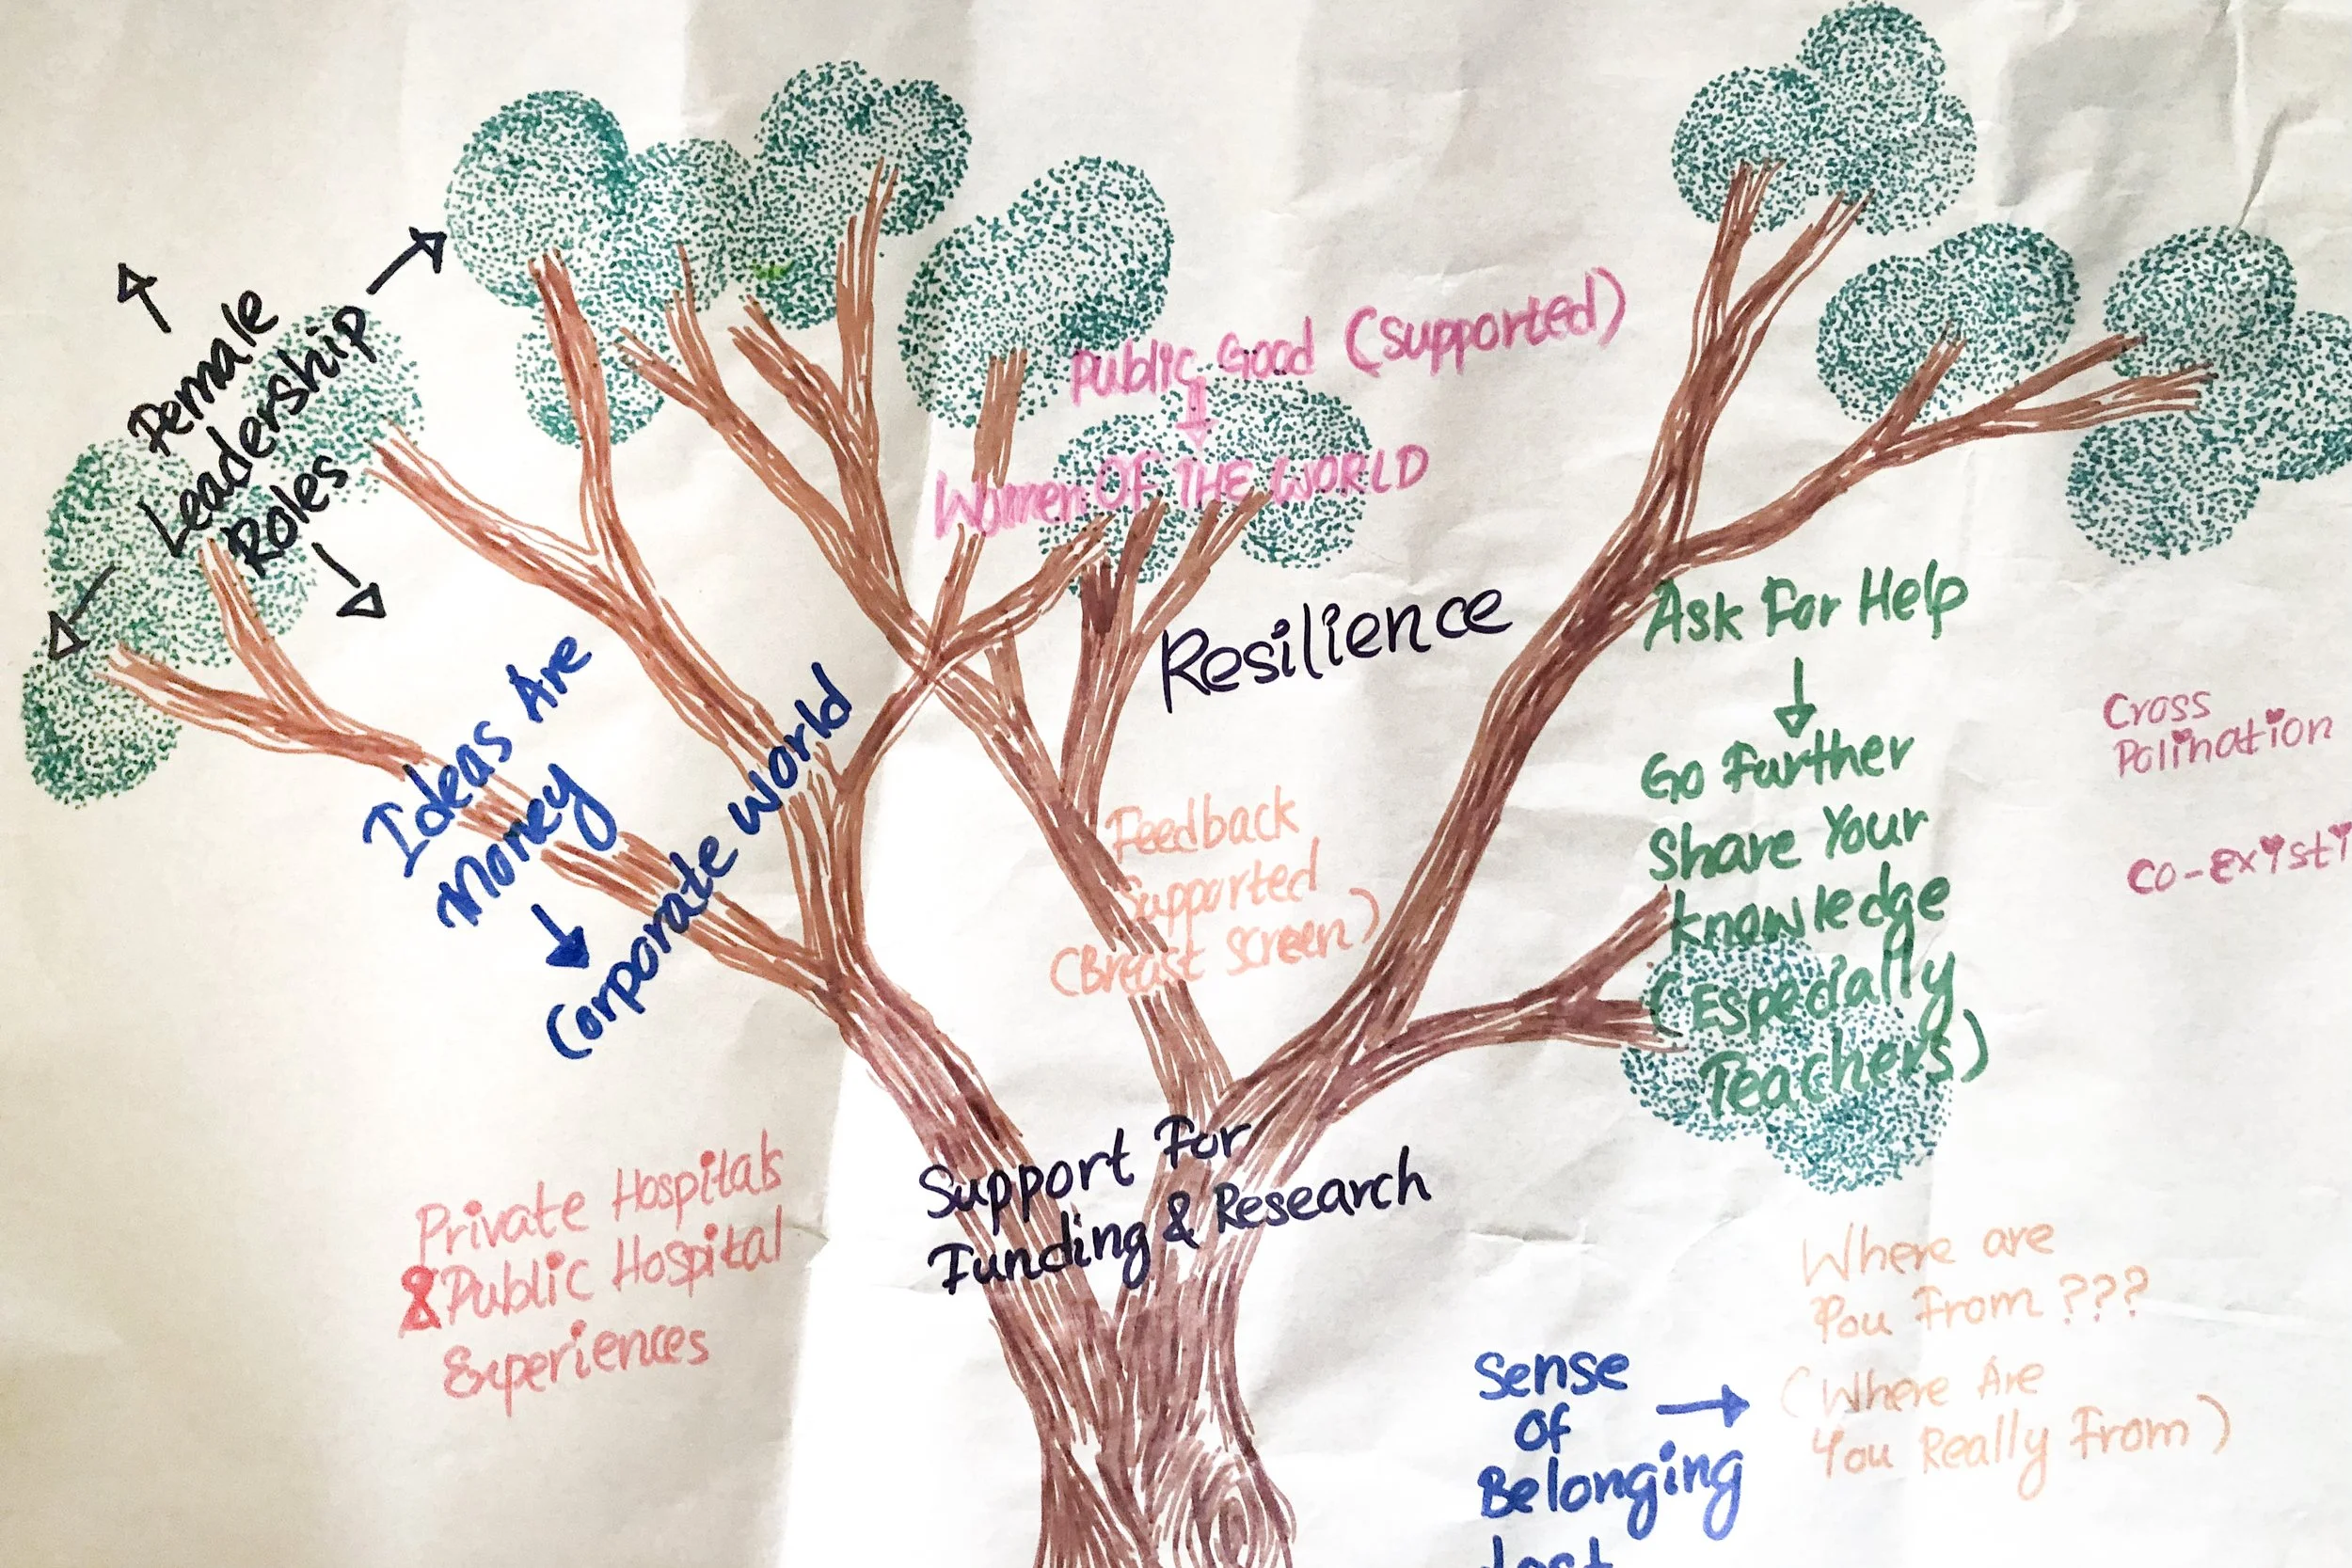 Female
Leadership
Roles
Public Good (Supported)
Women OF THE WORLD
Resilience
Ideas Are
Money
Corporate World
Ask For Help
Go Further
Share Your
knowledge
(Especially
Teachers)
Cross
Polination
Co-Existi
Feedback
Supported
(Breast Screen)
Support For
Funding & Research
Private Hospitals
& Public Hospital
Experiences
Where are
You From ???
(Where Are
You Really From)
Sense
Of
Belonging
Lost